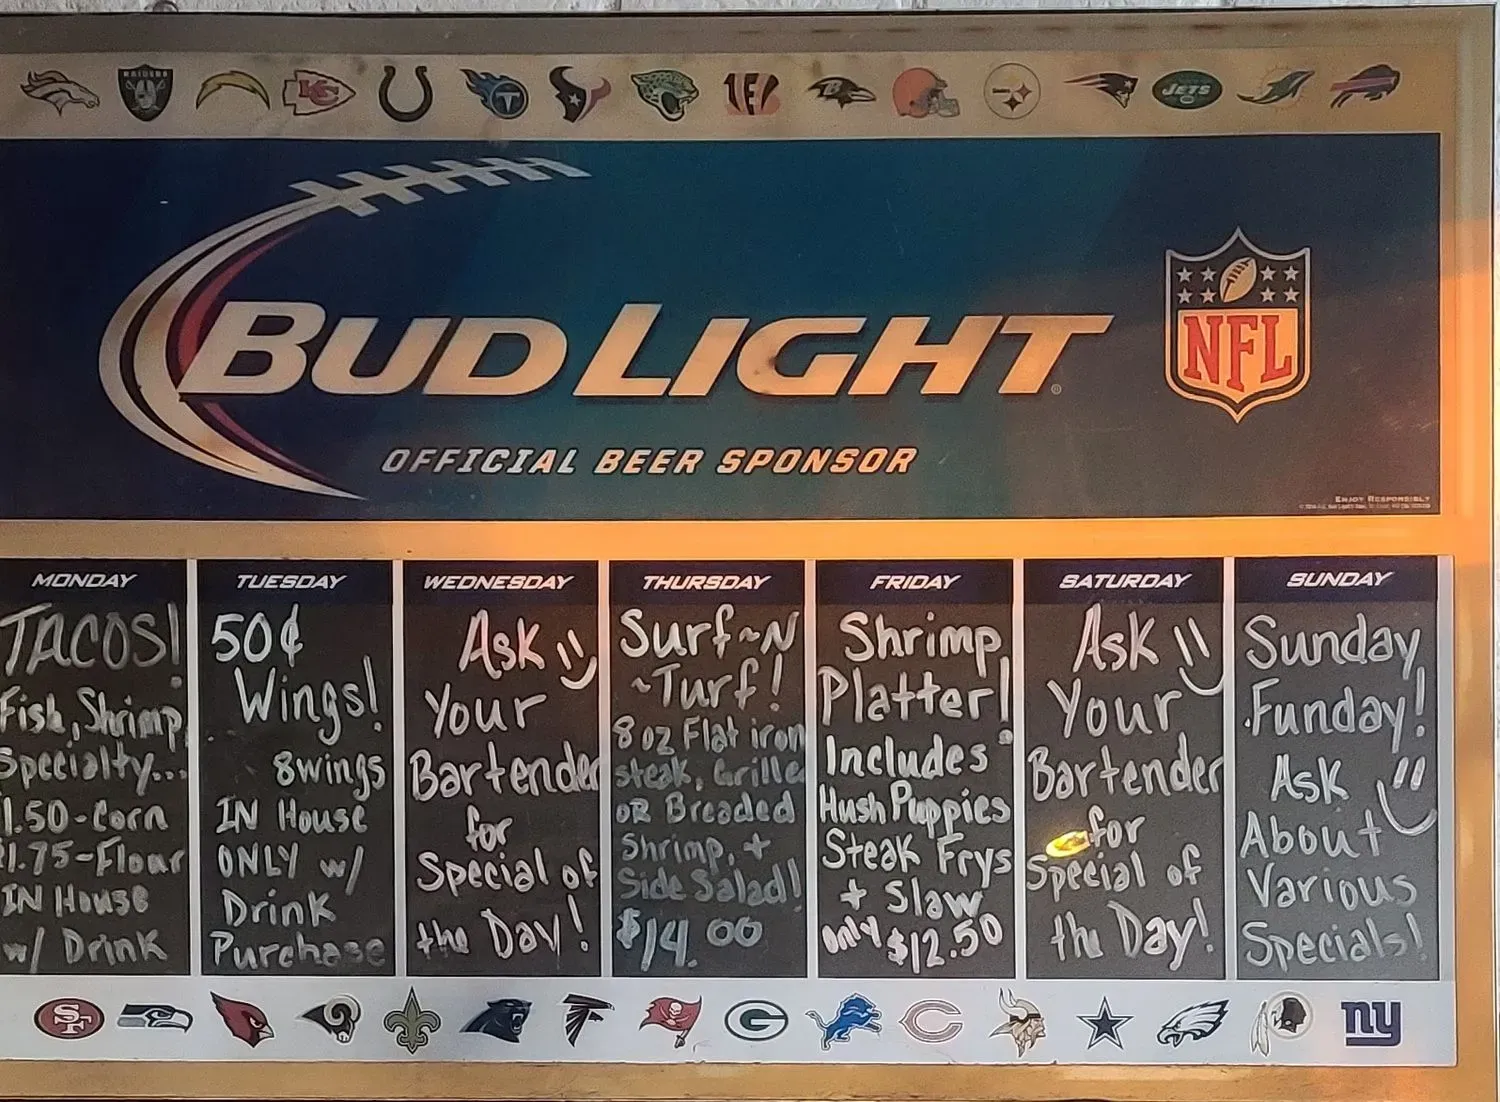 RAIDERS
KC
T
B
JETS
BUD LIGHT®
NFL
OFFICIAL BEER SPONSOR
ENJOY RESPONSIBLY
MONDAY
TACOS!
Fish, Shrimp,
Specialty...
1.50-Corn
$1.75-Flour
IN House
w/ Drink
TUESDAY
50¢
Wings!
8wings
IN House
ONLY w/
Drink
Purchase
WEDNESDAY
Ask
Your
Bartender
for
Special of
the Day!
THURSDAY
Surf~N
~Turf!
8 oz Flat iron
steak, Grilled
OR Breaded
Shrimp, +
Side Salad!
$14.00
FRIDAY
Shrimp
Platter!
Includes:
Hush Puppies
Steak Frys
+ Slaw
only $12.50
SATURDAY
Ask
Your
Bartender
for
Special of
the Day!
SUNDAY
Sunday
Funday!
Ask
About
Various
Specials!
SF
G
C
ny